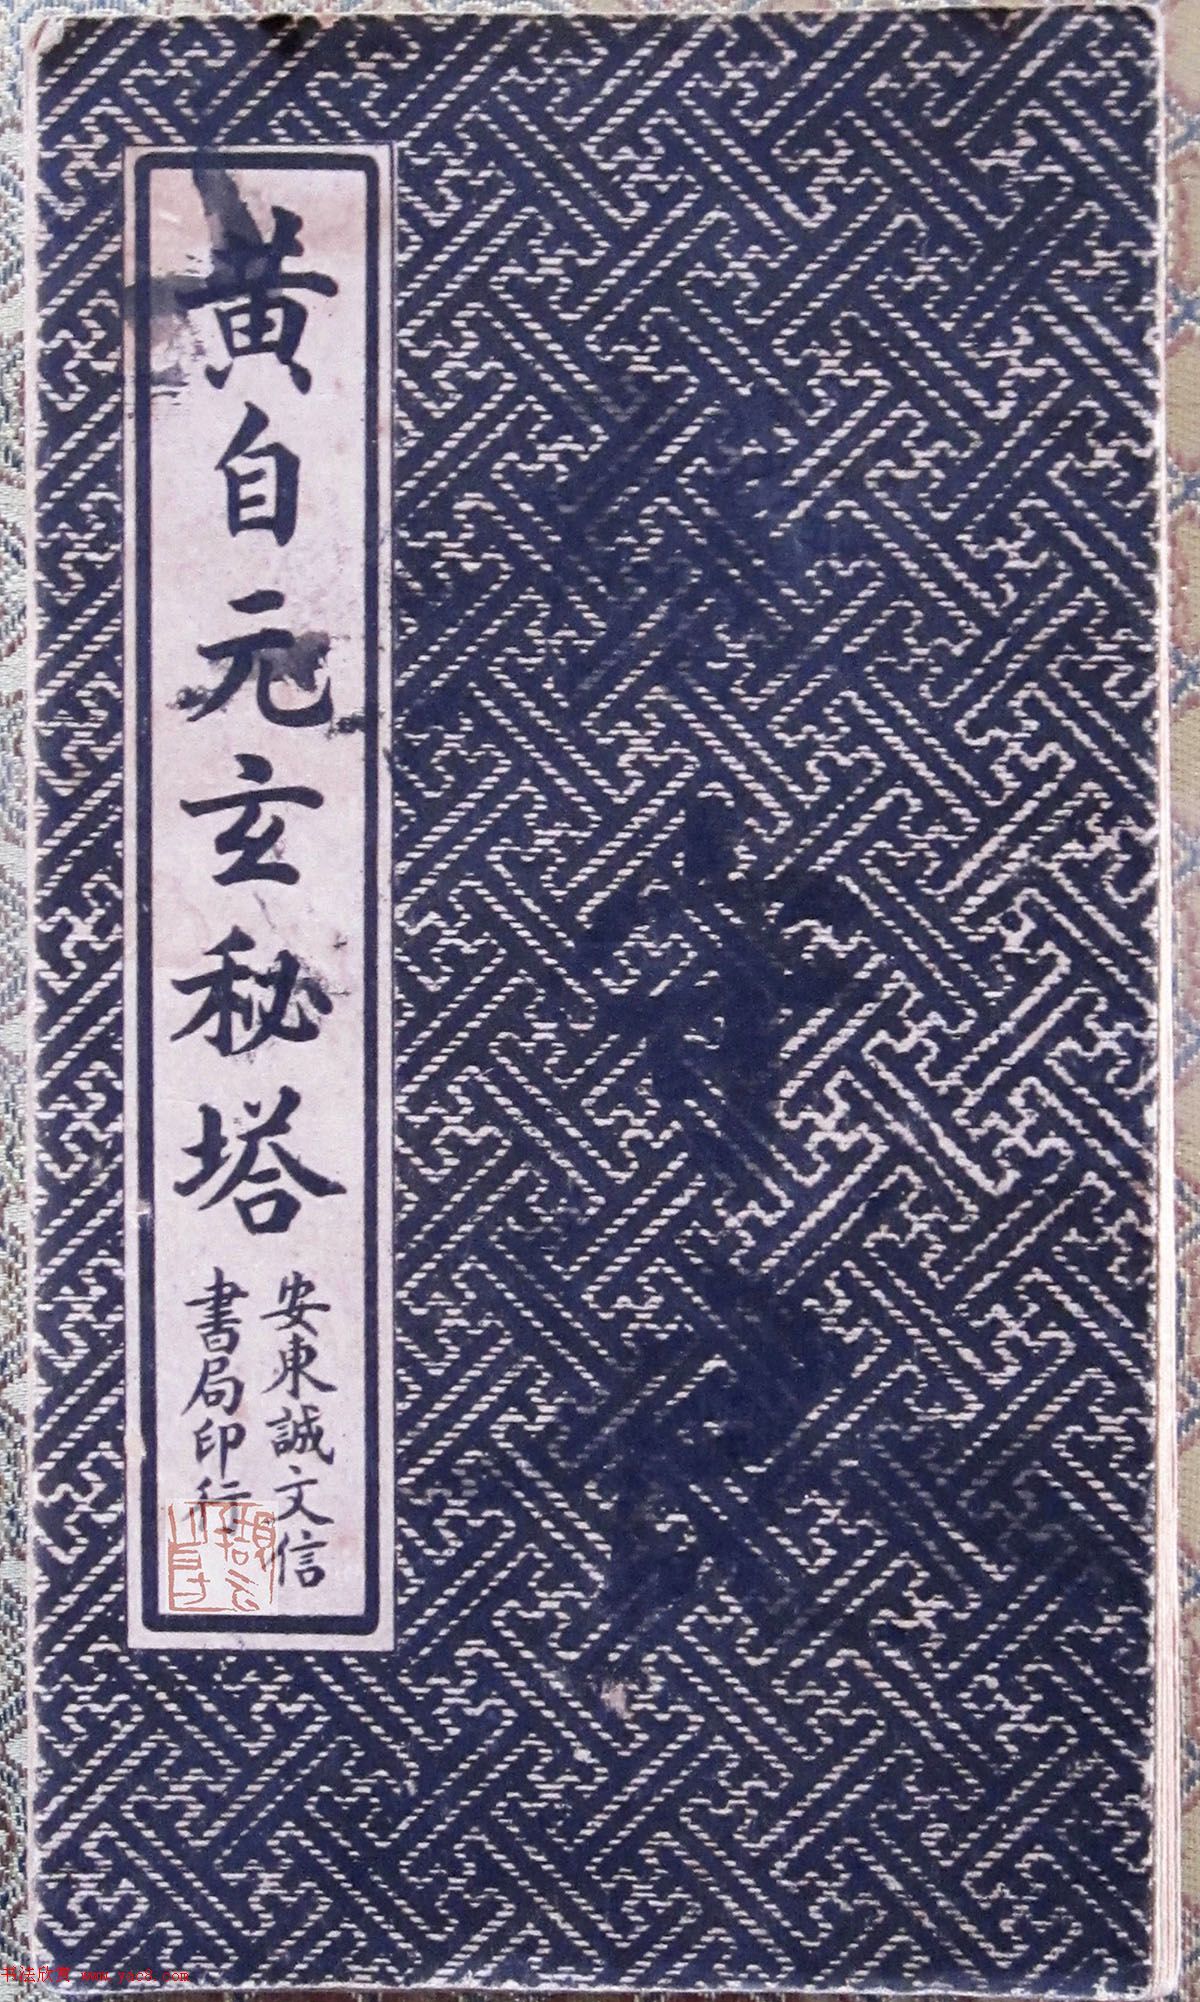 黄自元玄秘塔
安東誠文信
書局印行
书法欣赏 www.yac8.com